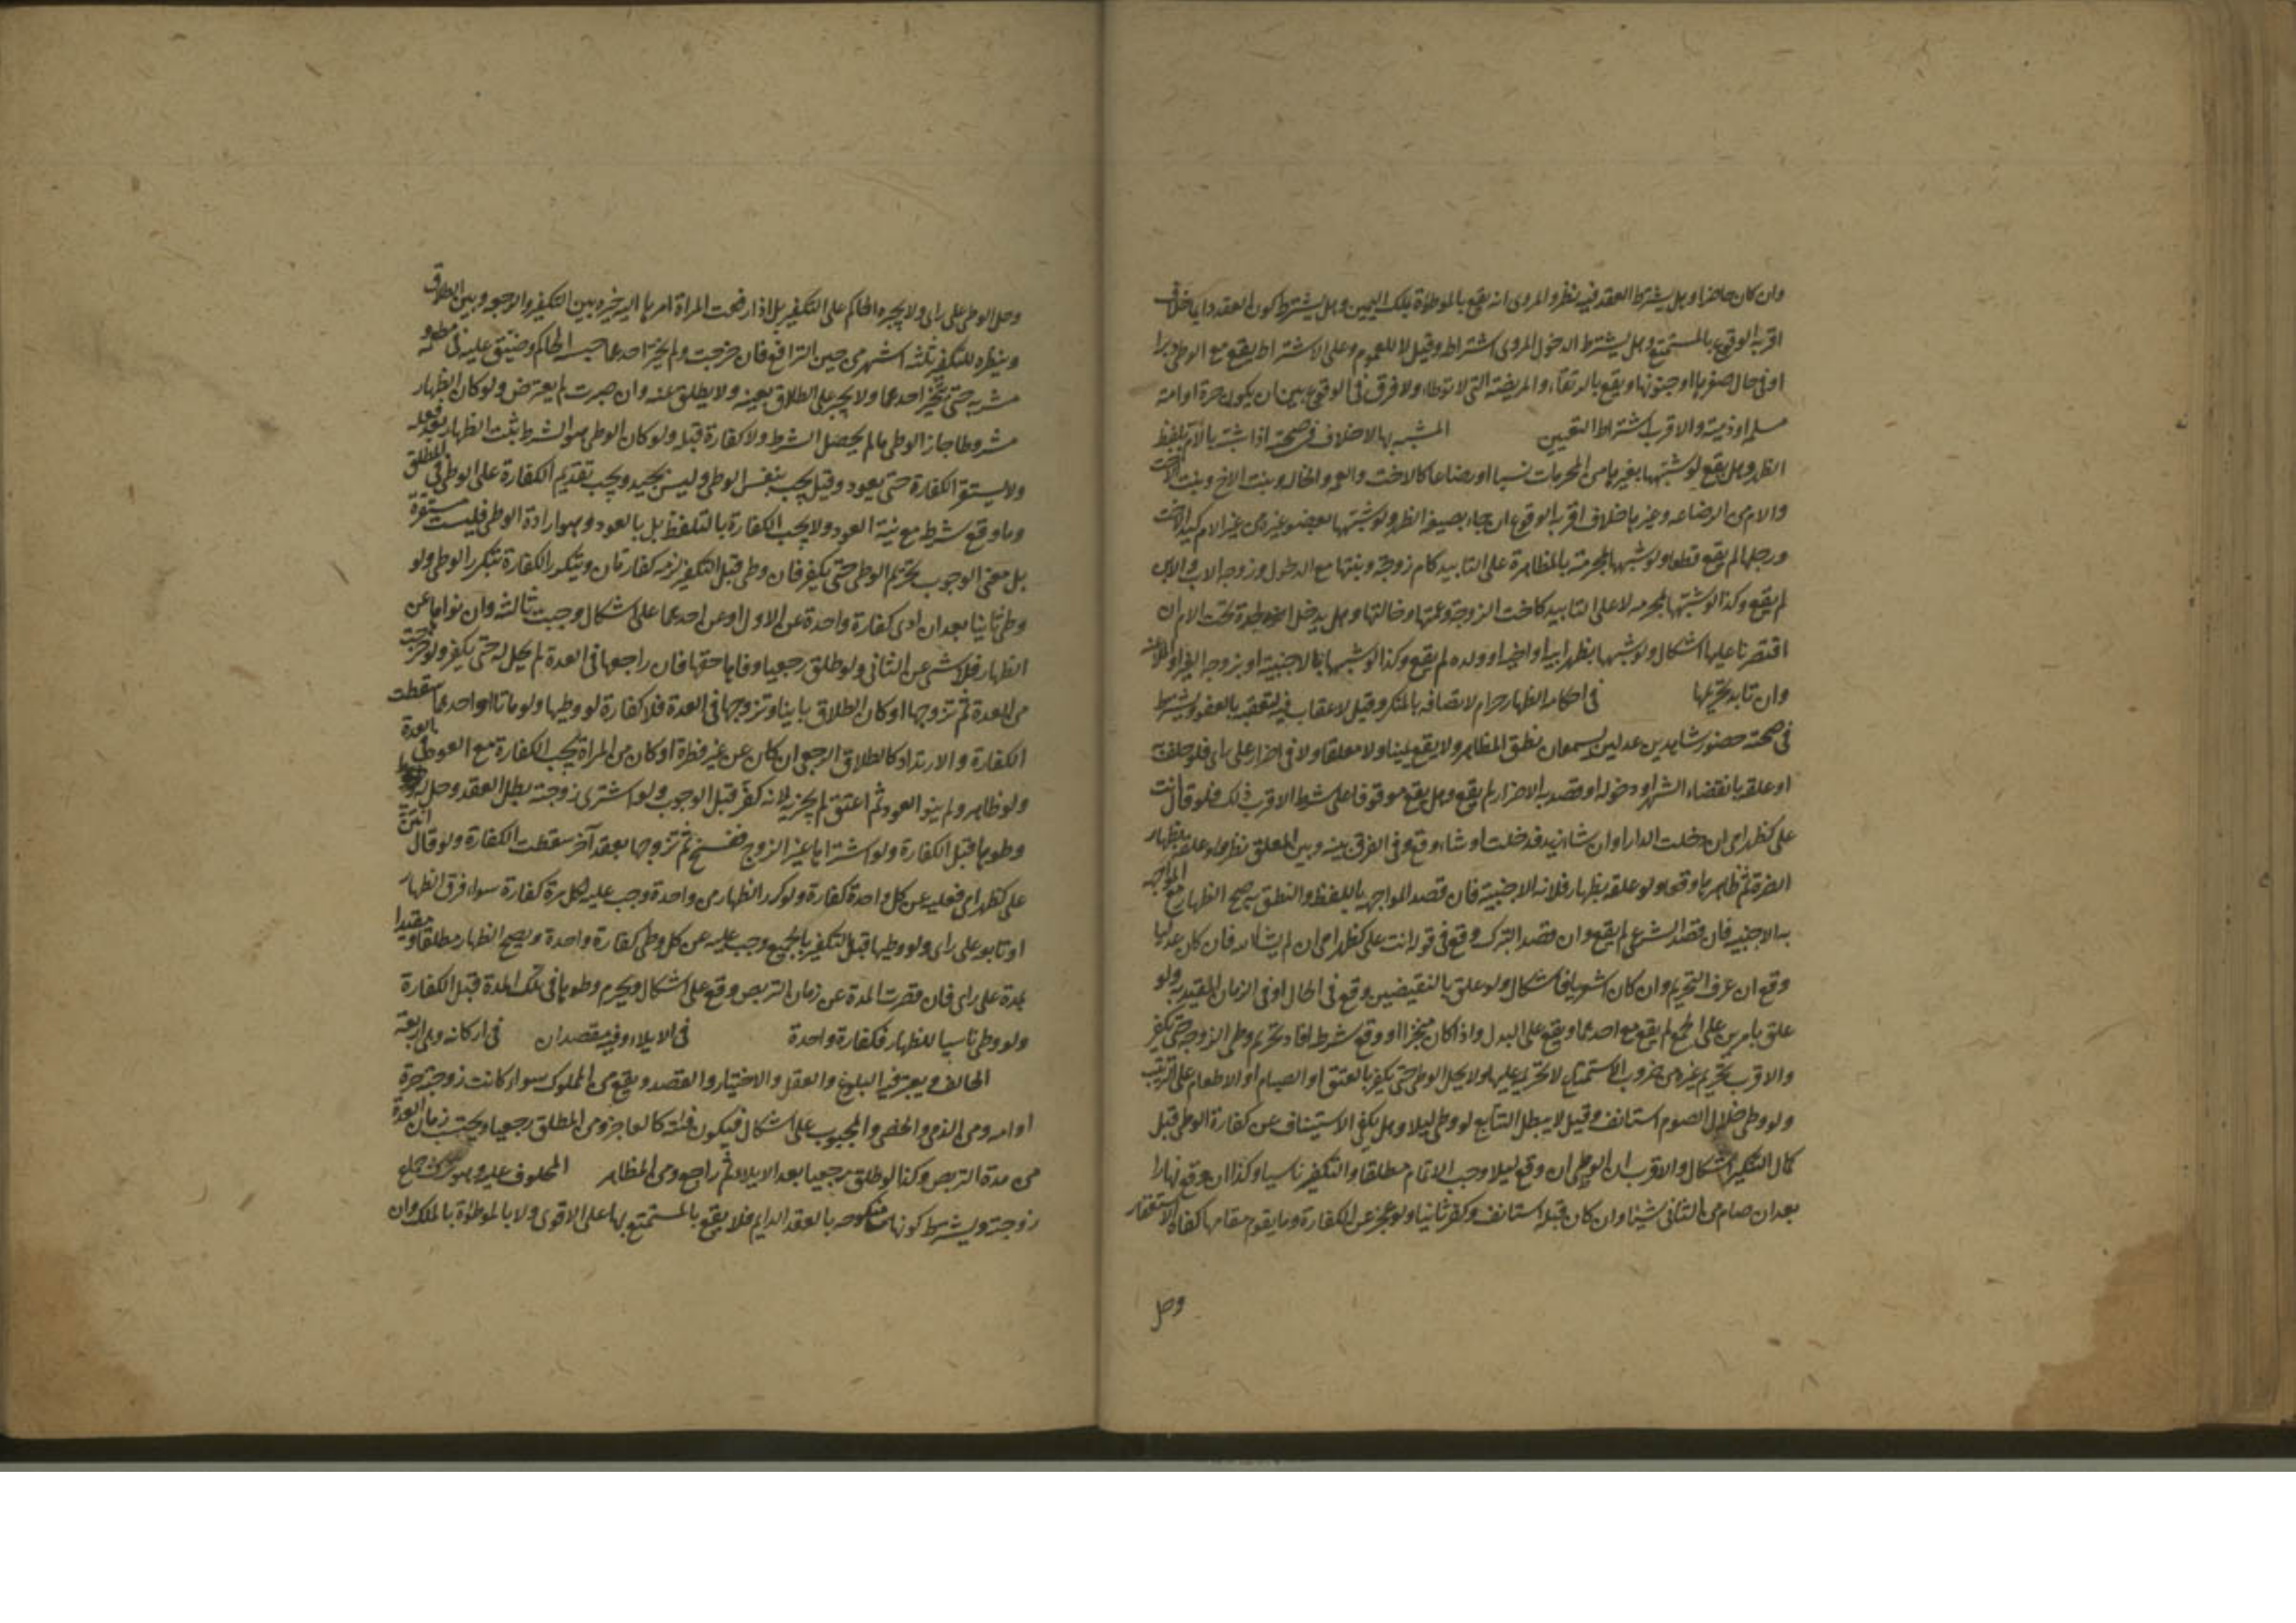 وان كان حاضرا وهل يشترط العقد فيه نظر والمروى انه يقع بالموطؤة بملك اليمين وهل يشترط كون العقد دايما خلاف
اقربه الوقوع بالمستمتع بها وهل يشترط الدخول المروى اشتراطه وقيل لا للعموم وعلى الاشتراط يقع مع الوطى دبرا
او فى حال صغرها او جنونها ويقع بالرتقاء والمريضة التى لا توطا ولا فرق فى الوقوع بين ان يكون حرة او امة
مسلمة او ذمية والاقرب اشتراط التعيين المشبه بها لا خلاف فى صحته اذا شبه بالام بلفظ
الظهر وهل يقع لو شبهها بغيرها من المحرمات نسبا او رضاعا كالاخت والعمة والخالة وبنت الاخ وبنت الاخت
والام من الرضاعة وغيرها خلاف اقربه الوقوع ان جاء بصيغة الظهر ولو شبهها بعضو غيره من غير الام كيد الاخت
ورجلها لم يقع قطعا ولو شبهها بمحرمة بالمظاهرة على التابيد كام زوجته وبنتها مع الدخول وزوجة الاب والابن
لم يقع وكذا لو شبهها بمحرمة لا على التابيد كاخت الزوجة وعمتها وخالتها وهل يدخل الجدة تحت الام ان
اقتصرنا عليها اشكال ولو شبهها بظهر ابيه او اخيه او ولده لم يقع وكذا لو شبهها بالاجنبية او بزوجة الغير او الملاعنة
وان تابد تحريمها فى احكامه الظهار حرام لاتصافه بالمنكر وقيل لا عقاب فيه لتعقبه بالعفو ويشترط
فى صحته حضور شاهدين عدلين يسمعان نطق المظاهر ولا يقع يمينا ولا معلقا ولا فى اضرار على راى فلو حلف به
او علقه بانقضاء الشهر او دخوله او قصد به الاضرار لم يقع وهل يقع موقوفا على شرط الاقرب ذلك فلو قال انت
على كظهر امى ان دخلت الدار او ان شاء زيد فدخلت او شاء وقع وفى الفرق بينه وبين المعلق نظر ولو علقه بظهار
الضرة ثم ظاهرها وقعا ولو علقه بظهار فلانة الاجنبية فان قصد المواجهة باللفظ والنطق به صح الظهار مع المواجهة
به الاجنبية فان قصد الشرعى لم يقع وان قصد التبرك وقع فى قوله انت على كظهر امى ان لم يشاء الله فان كان عدليا
وقع ان عرف التحريم وان كان اشعريا فاشكال ولو علق بالنقيضين وقع فى الحال او فى الزمان المقيد به ولو
علق بامرين على الجمع لم يقع مع احدهما ويقع على البدل واذا كان منجزا او وقع شرطه افاد تحريم وطى الزوجة حتى يكفر
والاقرب تحريم غيره من ضروب الاستمتاع لا تحريمه عليها ولا يحل الوطى حتى يكفر بالعتق او الصيام او الاطعام على الترتيب
ولو وطى خلال الصوم استانف وقيل لا يبطل التتابع لو وطى ليلا وهل يكفى الاستيناف عن كفارة الوطى قبل
كمال التكفير اشكال والاقرب ان الوطى ان وقع ليلا وجب الاتمام مطلقا والتكفير ناسيا وكذا ان وقع نهارا
بعد ان صام من الثانى شيئا وان كان قبله استانف وكفر ثانيا ولو عجز عن الكفارة وما يقوم مقامها كفاه الاستغفار
وحل
وحل الوطى على راى ولا يجبره الحاكم على التكفير بل اذا رفعت المراة امرها اليه خيره بين التكفير والرجوع وبين الطلاق
وينظره للتكفير ثلثة اشهر من حين الترافع فان خرجت ولم يختر احدهما حبسه الحاكم وضيق عليه فى مطعمه و
مشربه حتى يختار احدهما ولا يجبر على الطلاق بعينه ولا يطلق عنه وان صبرت لم يعترض ولو كان الظهار
مشروطا جاز الوطى ما لم يحصل الشرط ولا كفارة قبله ولو كان الوطى هو الشرط ثبت الظهار بعد فعله
ولا يستقر الكفارة حتى يعود وقيل يجب بنفس الوطى وليس بجيد ويجب تقديم الكفارة على الوطى فى المطلق
وما وقع شرطه مع نية العود ولا يجب الكفارة بالتلفظ بل بالعود وهو ارادة الوطى فليست مستقرة
بل معنى الوجوب تحريم الوطى حتى يكفر فان وطى قبل التكفير لزمه كفارتان ويتكرر الكفارة بتكرر الوطى ولو
وطى ثانيا بعد ان ادى كفارة واحدة عن الاول او عن احدهما على اشكال وجبت ثالثة وان نواها عن
الظهار فلا شى عن الثانى ولو طلق رجعيا وفاها حقها فان راجعها فى العدة لم يحل له حتى يكفر ولو خرجت
من العدة ثم تزوجها او كان الطلاق باينا وتزوجها فى العدة فلا كفارة لو وطيها ولو ماتا او احدهما سقطت
الكفارة والارتداد كالطلاق الرجعى ان كان عن غير فطرة او كان من المراة يجب الكفارة مع العود فى العدة
ولو ظاهر ولم ينو العود ثم اعتق لم يجزيه لانه كفر قبل الوجوب ولو اشترى زوجته بطل العقد وحل له
وطوها قبل الكفارة ولو اشتراها غير الزوج ففسخ ثم تزوجها بعقد آخر سقطت الكفارة ولو قال انتن
على كظهر امى فعليه عن كل واحدة كفارة ولو كرر الظهار من واحدة وجب عليه بكل مرة كفارة سواء فرق الظهار
او تابعه على راى ولو وطيها قبل التكفير بالجميع وجب عليه عن كل وطى كفارة واحدة ويصح الظهار مطلقا ومقيدا
بمدة على راى فان قصرت المدة عن زمان التربص وقع على اشكال ويحرم وطوها فى تلك المدة قبل الكفارة
ولو وطى ناسيا للظهار فكفارة واحدة فى الايلاء وفيه مقصدان فى اركانه وهى اربعة
الحالف ويعتبر فيه البلوغ والعقل والاختيار والقصد ويقع من المملوك سواء كانت زوجته حرة
او امة ومن الذمى والخصى والمجبوب على اشكال فيكون فئته كالعاجز ومن المطلق رجعيا ويحتسب زمان العدة
من مدة التربص وكذا لو طلق رجعيا بعد الايلاء ثم راجع ومن المظاهر المحلوف عليه وهو ترك جماع
زوجته ويشترط كونها منكوحة بالعقد الدايم فلا يقع بالمستمتع بها على الاقوى ولا بالموطؤة بالملك وان